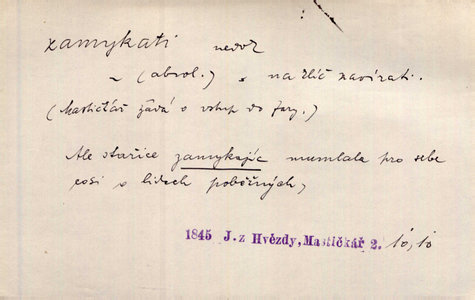 zamykati nedok
~ (absol.) = na klíč zavírati.
(Mastičkář žádá o vstup do fary.)
Ale stařice zamykajíc mumlala pro sebe
cosi o lidech pobočných,
1845 J. z Hvězdy, Mastičkář 2. 10, 10